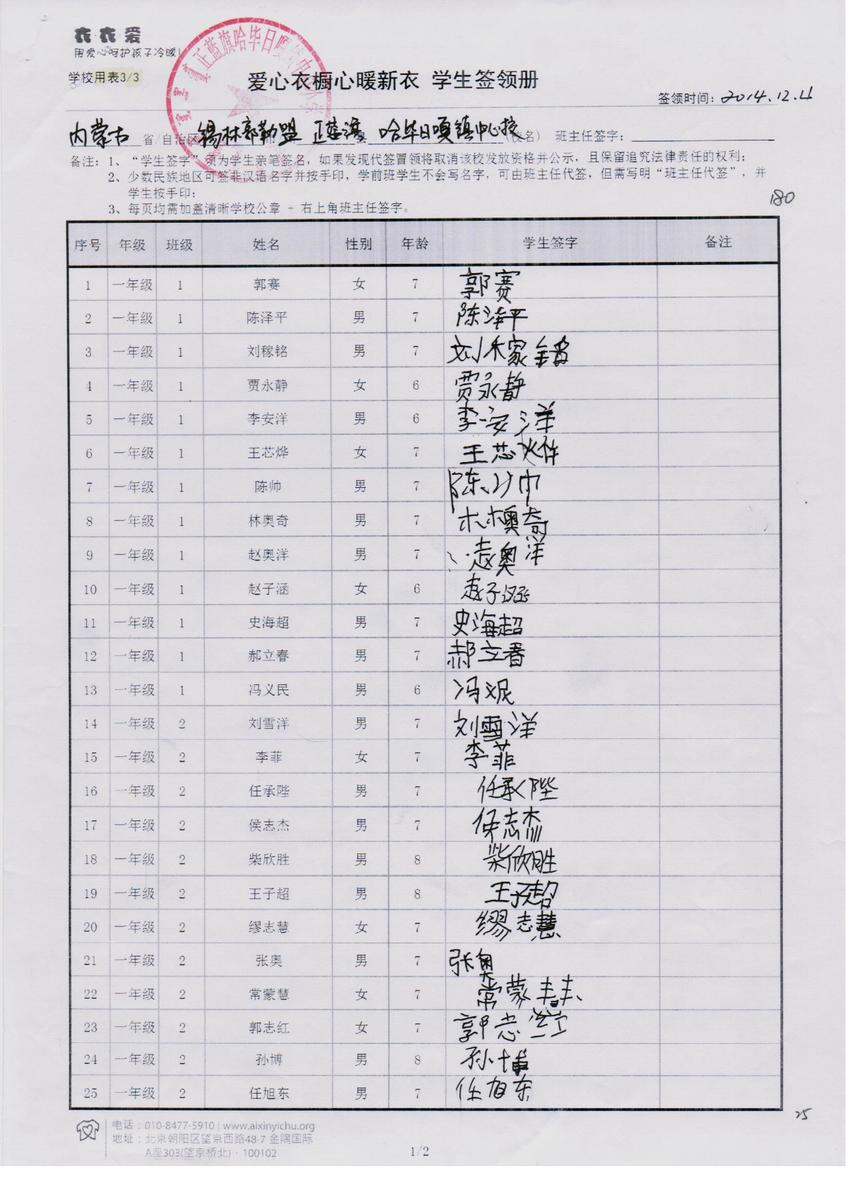 衣衣爱
用爱心呵护孩子冷暖!
学校用表3/3
爱心衣橱心暖新衣 学生签领册
签领时间: 2014.12.4
内蒙古 省/自治区 锡林郭勒盟 正蓝旗 哈毕日嘎镇中心校 (校名) 班主任签字:
备注: 1、“学生签字”须为学生亲笔签名,如果发现代签冒领将取消该校发放资格并公示,且保留追究法律责任的权利;
2、少数民族地区可签非汉语名字并按手印,学前班学生不会写名字,可由班主任代签,但需写明“班主任代签”,并
学生按手印;
3、每页均需加盖清晰学校公章 + 右上角班主任签字。
180
序号 年级 班级 姓名 性别 年龄 学生签字 备注
1 一年级 1 郭赛 女 7 郭赛
2 一年级 1 陈泽平 男 7 陈泽平
3 一年级 1 刘稼铭 男 7 刘稼铭
4 一年级 1 贾永静 女 6 贾永静
5 一年级 1 李安洋 男 6 李安洋
6 一年级 1 王芯烨 女 7 王芯烨
7 一年级 1 陈帅 男 7 陈帅
8 一年级 1 林奥奇 男 7 林奥奇
9 一年级 1 赵奥洋 男 7 赵奥洋
10 一年级 1 赵子涵 女 6 赵子涵
11 一年级 1 史海超 男 7 史海超
12 一年级 1 郝立春 男 7 郝立春
13 一年级 1 冯义民 男 6 冯义民
14 一年级 2 刘雪洋 男 7 刘雪洋
15 一年级 2 李菲 女 7 李菲
16 一年级 2 任承陛 男 7 任承陛
17 一年级 2 侯志杰 男 7 侯志杰
18 一年级 2 柴欣胜 男 8 柴欣胜
19 一年级 2 王子超 男 8 王子超
20 一年级 2 缪志慧 女 7 缪志慧
21 一年级 2 张奥 男 7 张奥
22 一年级 2 常蒙慧 女 7 常蒙慧
23 一年级 2 郭志红 女 7 郭志红
24 一年级 2 孙博 男 8 孙博
25 一年级 2 任旭东 男 7 任旭东
25
电话:010-8477-5910 | www.aixinyichu.org
地址:北京朝阳区望京西路48-7 金隅国际
A座303(望京桥北) · 100102
1/2